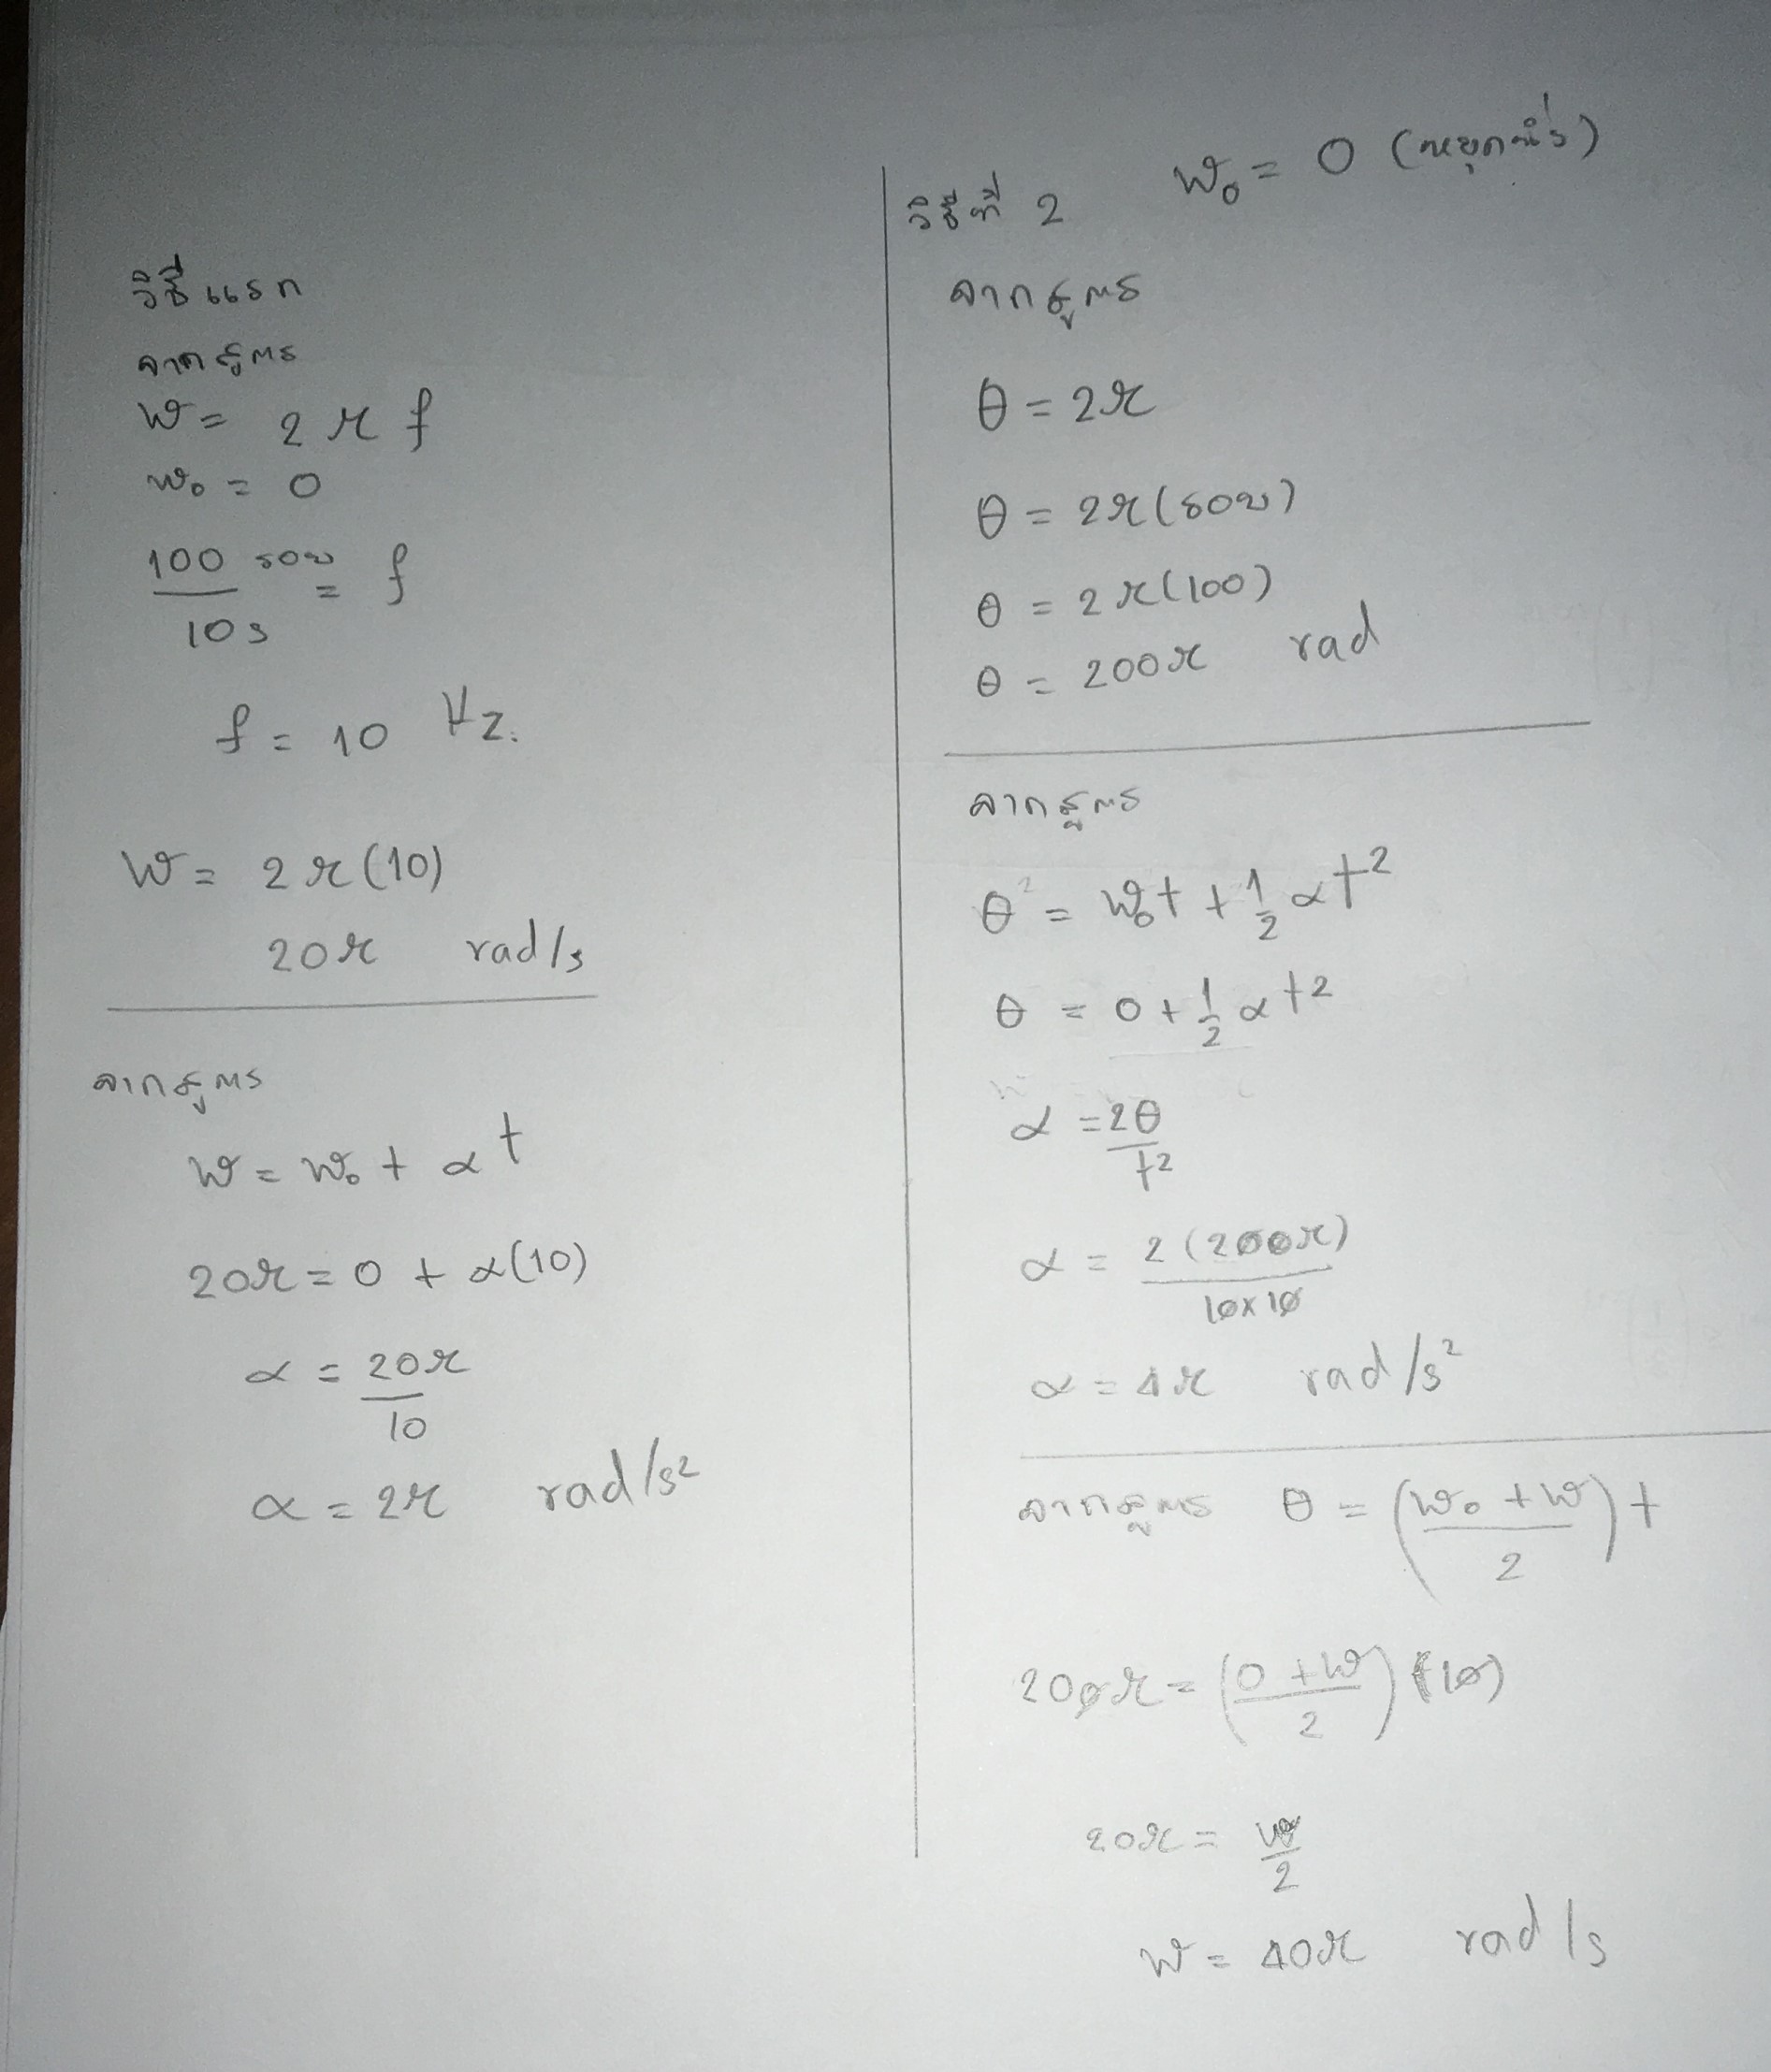 วิธีแรก
จากสูตร
ω = 2πf
ω₀ = 0
100 รอบ / 10 s = f
f = 10 Hz.
ω = 2π(10)
20π rad/s
จากสูตร
ω = ω₀ + αt
20π = 0 + α(10)
α = 20π / 10
α = 2π rad/s²
วิธีที่ 2 ω₀ = 0 (หยุดนิ่ง)
จากสูตร
θ = 2π
θ = 2π(รอบ)
θ = 2π(100)
θ = 200π rad
จากสูตร
θ = ω₀t + ½ αt²
θ = 0 + ½ αt²
α = 2θ / t²
α = 2(200π) / 10×10
α = 4π rad/s²
จากสูตร θ = ((ω₀ + ω) / 2) t
200π = ((0 + ω) / 2) (10)
20π = ω / 2
ω = 40π rad/s